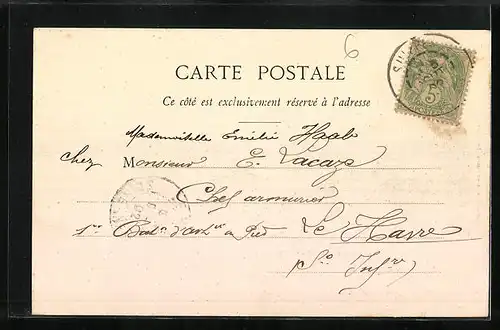 6
CARTE POSTALE
Ce côté est exclusivement réservé à l'adresse
Mademoiselle Emilie Haab
chez Monsieur E. Lacaze
Chef armurier
1er Batn d'art. à Pied Le Havre
Sne Infre
5